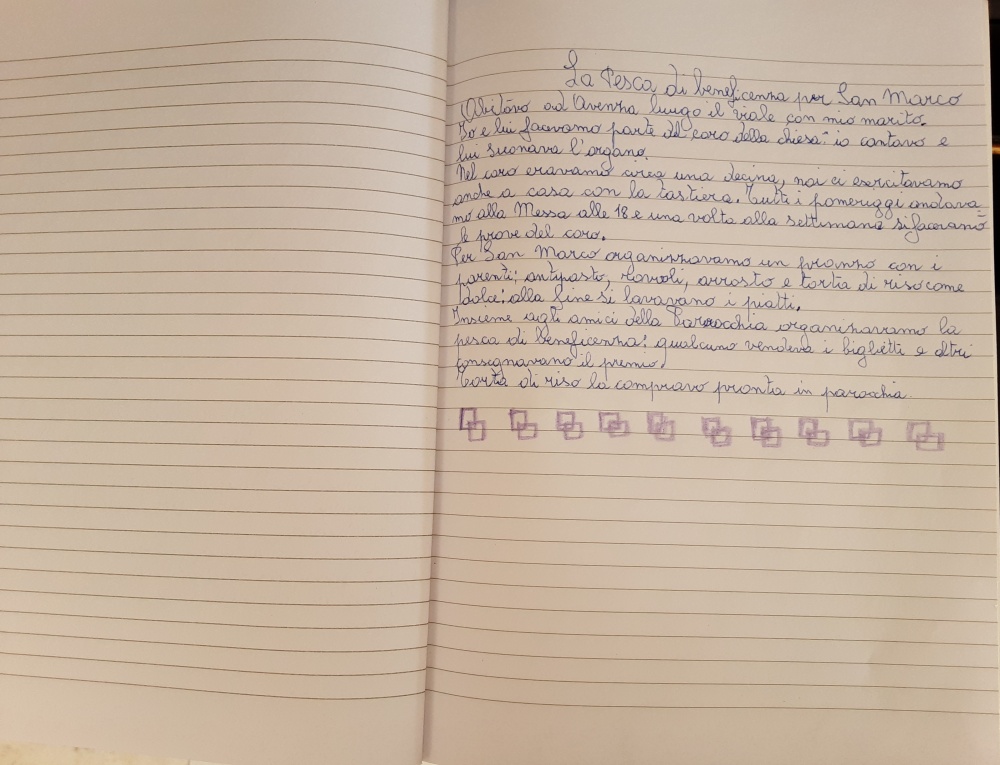 La Pesca di beneficenza per San Marco
Abitavo ad Avenza lungo il viale con mio marito.
Io e lui facevamo parte del coro della chiesa: io cantavo e
lui suonava l'organo.
Nel coro eravamo circa una decina, noi ci esercitavamo
anche a casa con la tastiera. Tutti i pomeriggi andava=
mo alla Messa alle 18 e una volta alla settimana si facevano
le prove del coro.
Per San Marco organizzavamo un pranzo con i
parenti: antipasto, ravioli, arrosto e torta di riso come
dolce: alla fine si lavavano i piatti.
Insieme agli amici della Parrocchia organizzavamo la
pesca di beneficenza: qualcuno vendeva i biglietti e altri
consegnavano il premio.
Torta di riso la compravo pronta in parocchia